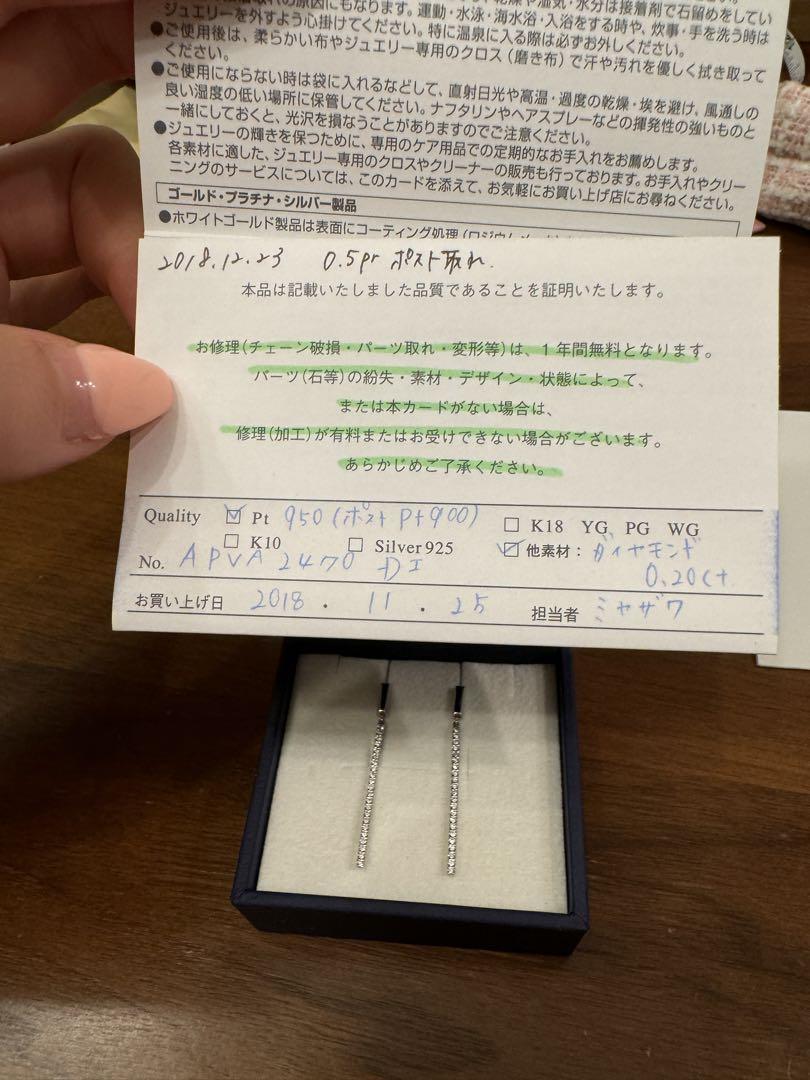 ジュエリーを外すよう心掛けてください。特に温泉に入る際は必ずお外しください。
●ご使用後は、柔らかい布やジュエリー専用のクロス(磨き布)で汗や汚れを優しく拭き取って
ください。
●ご使用にならない時は袋に入れるなどして、直射日光や高温・過度の乾燥・埃を避け、風通しの
良い湿度の低い場所に保管してください。ナフタリンやヘアスプレーなどの揮発性の強いものと
一緒にしておくと、光沢を損なうことがありますのでご注意ください。
●ジュエリーの輝きを保つために、専用のケア用品での定期的なお手入れをお薦めします。
各素材に適した、ジュエリー専用のクロスやクリーナーの販売も行っております。お手入れやクリー
ニングのサービスについては、このカードを添えて、お気軽にお買い上げ店にお尋ねください。
ゴールド・プラチナ・シルバー製品
●ホワイトゴールド製品は表面にコーティング処理
2018.12.23 0.5pr ポスト取れ.
本品は記載いたしました品質であることを証明いたします。
お修理(チェーン破損・パーツ取れ・変形等)は、1年間無料となります。
パーツ(石等)の紛失・素材・デザイン・状態によって、
または本カードがない場合は、
修理(加工)が有料またはお受けできない場合がございます。
あらかじめご了承ください。
Quality ☑ Pt 950(ポスト Pt900) □ K18 YG PG WG
□ K10 □ Silver 925 ☑ 他素材: ダイヤモンド
0.20ct
No. APVA 2470 DI
お買い上げ日 2018 . 11 . 25 担当者 ミヤザワ